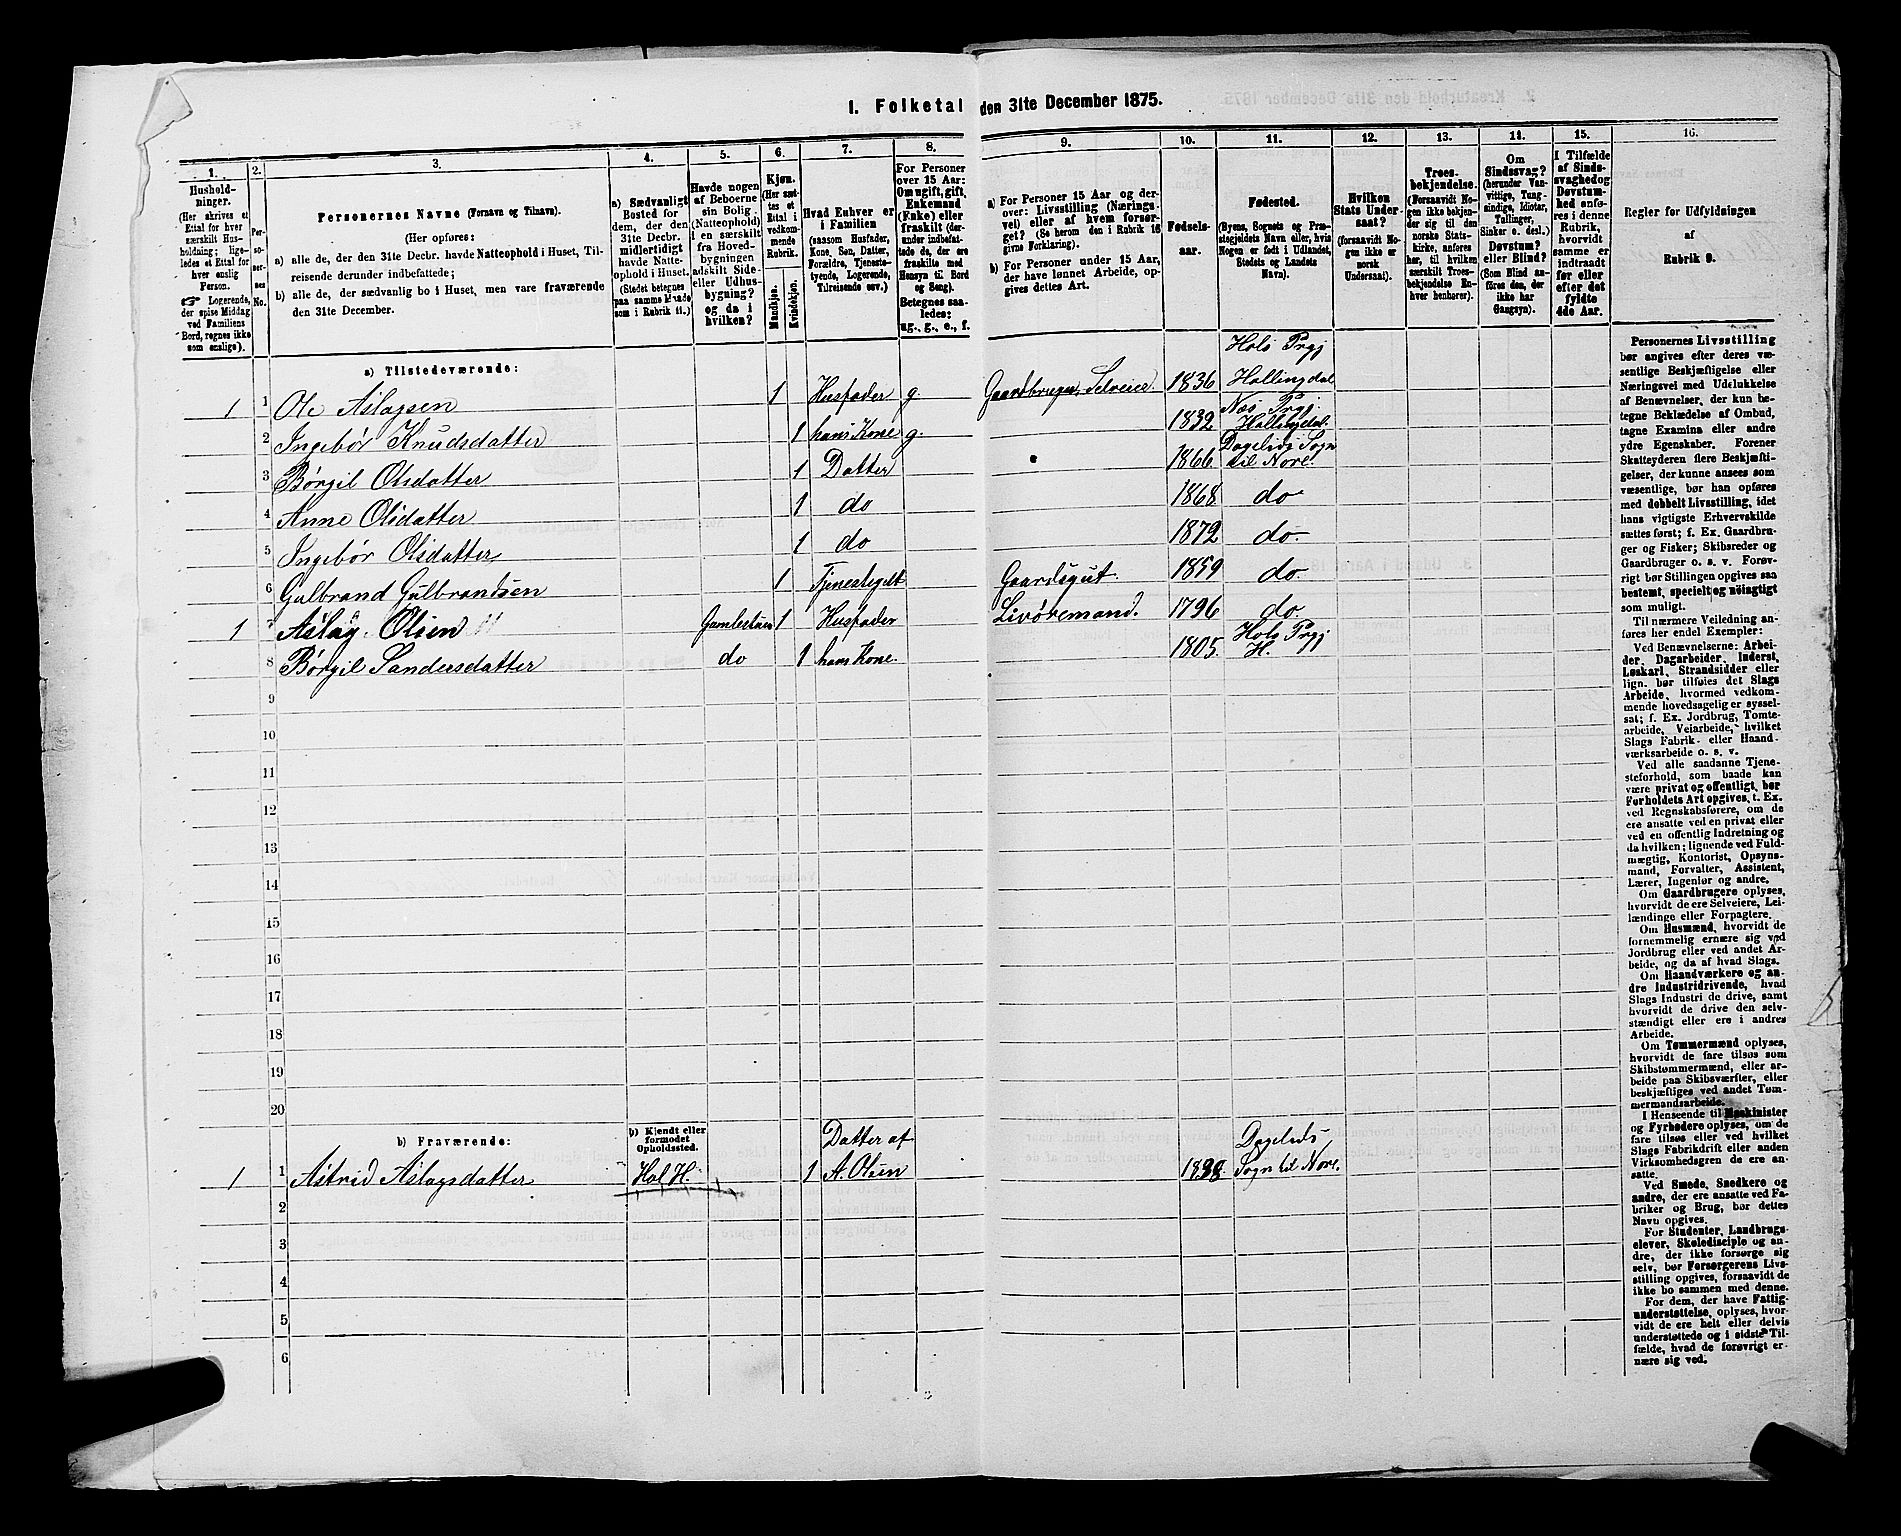 1. Folketal den 31te December 1875.
1.
Hushold-
ninger.
(Her skrives et
Ettal for hver
særskilt Hus-
holdning; lige-
ledes et Ettal for
hver enslig
Person.
☞ Logerende,
der spise Middag
ved Familiens
Bord, regnes ikke
som enslige).
2.
Per-
so-
ner-
nes
No.
3.
Personernes Navne (Fornavn og Tilnavn).
(Her opføres:
a) alle de, der den 31te Decbr. havde Natteophold i Huset, Til-
reisende derunder indbefattede;
b) alle de, der sædvanlig bo i Huset, men vare fraværende
den 31te December.
4.
a) Sædvanligt
Bosted for
dem, der den
31te Decbr.
midlertidigt
havde Natte-
ophold i Huset.
(Stedet betegnes
paa samme Maade
som i Rubrik 11.)
5.
Havde nogen
af Beboerne
sin Bolig
(Natteophold)
i en særskilt
fra Hoved-
bygningen
adskilt Side-
eller Udhus-
bygning?
og da i
hvilken?
6.
Kjøn.
(Her sæt-
tes et
Ettal i
vedkom-
mende
Rubrik.
Mandkjøn.
Kvindekjøn.
7.
Hvad Enhver er
i Familien
(saasom Husfader,
Kone, Søn, Datter,
Forældre, Tjeneste-
tyende, Logerende,
Tilreisende osv.)
8.
For Personer
over 15 Aar:
Om ugift, gift,
Enkemand
(Enke) eller
fraskilt (der-
under indbefat-
tede de, der ere
fraskilte med
Hensyn til Bord
og Seng).
Betegnes saa-
ledes:
ug., g., e., f.
9.
a) For Personer 15 Aar og der-
over: Livsstilling (Nærings-
vei) eller af hvem forsør-
get? (Se herom den i Rubrik 16
givne Forklaring).
b) For Personer under 15 Aar,
der have lønnet Arbeide, op-
gives dettes Art.
10.
Fødsels-
aar.
11.
Fødested.
(Byens, Sognets og Præ-
stegjeldets Navn eller, hvis
Nogen er født i Udlandet,
Stedets og Landets
Navn).
12.
Hvilken
Stats Under-
saat?
(forsaavidt No-
gen ikke er
norsk
Undersaat).
13.
Troes-
bekjendelse.
(Forsaavidt No-
gen ikke bekjen-
der sig til den
norske Stats-
kirke, anføres
her, til hvilken
særskilt Troes-
bekjendelse En-
hver henhører).
14.
Om
Sindssvag?
(herunder Van-
vittige, Tung-
sindige, Idioter,
Tullinger,
Sinker o. desl.)
Døvstum?
eller Blind?
(Som Blind an-
føres den, der
ikke har
Gangsyn).
15.
I Tilfælde
af Sinds-
svaghed og
Døvstum-
hed anfø-
res i denne
Rubrik,
hvorvidt
samme er
indtraadt
før eller
efter det
fyldte
4de Aar.
16.
Regler for Udfyldningen
af
Rubrik 9.
a) Tilstedeværende:
Hols Prgj
1 1 Ole Aslagsen 1 Husfader g. Gaardbruger, Selveier. 1836 Hallingdal
Næs Prgj
2 Ingebør Knudsdatter 1 hans Kone g. 1832 Hallingdal.
Dagelids Sogn
3 Børgil Olsdatter 1 Datter 1866. til Nore.
4 Anne Olsdatter 1 do 1868 do
5 Ingebør Olsdatter 1 do 1872 do.
6 Gulbrand Gulbrandsen 1 Tjenestegut Gaardsgut. 1859 do.
1 7 Aslag Olsen 1 Husfader Livøremand. 1796 do.
Hols Prgj
8 Børgil Sandersdatter do 1 hans Kone. 1805. H.
9
10
11
12
13
14
15
16
17
18
19
20
b) Fraværende:
b) Kjendt eller
formodet
Opholdssted.
Datter af
Dagelids
1 1 Astrid Aslagsdatter Hol H. 1 A. Olsen 1838 Sogn til Nore.
2
3
4
5
6
Personernes Livsstilling
bør angives efter deres væ-
sentlige Beskjæftigelse eller
Næringsvei med Udelukkelse
af Benævnelser, der kun be-
tegne Beklædelse af Ombud,
tagne Examina eller andre
ydre Egenskaber. Forener
Skatteyderen flere Beskjæfti-
gelser, der kunne ansees som
væsentlige, bør han opføres
med dobbelt Livsstilling, idet
hans vigtigste Erhvervskilde
sættes først; f. Ex. Gaardbru-
ger og Fisker; Skibsreder og
Gaardbruger o. s. v. Forøv-
rigt bør Stillingen opgives saa
bestemt, specielt og nøiagtigt
som muligt.
Til nærmere Veiledning an-
føres her endel Exempler:
Ved Benævnelserne: Arbei-
der, Dagarbeider, Inderst,
Løskarl, Strandsidder eller
lign. bør tilføies det Slags
Arbeide, hvormed vedkom-
mende hovedsagelig er syssel-
sat; f. Ex. Jordbrug, Tomte-
arbeide, Veiarbeide, hvilket
Slags Fabrik- eller Haand-
værksarbeide o. s. v.
Ved alle saadanne Tjene-
steforhold, som baade kan
være privat og offentligt, bør
Forholdets Art opgives, t. Ex.
ved Regnskabsførere, om de
ere ansatte ved en privat eller
ved en offentlig Indretning og
da hvilken; lignende ved Fuld-
mægtig, Kontorist, Opsyns-
mand, Forvalter, Assistent,
Lærer, Ingeniør og andre.
Om Gaardbrugere oplyses,
hvorvidt de ere Selveiere, Lei-
lændinge eller Forpagtere.
Om Husmænd, hvorvidt de
fornemmelig ernære sig ved
Jordbrug eller ved andet Ar-
beide, og da af hvad Slags.
Om Haandværkere og an-
dre Industridrivende, hvad
Slags Industri de drive, samt
hvorvidt de drive den selv-
stændigt eller ere i andres
Arbeide.
Om Tømmermænd oplyses,
hvorvidt de fare tilsøs som
Skibstømmermænd, eller ar-
beide paa Skibsværfter, eller
beskjæftiges ved andet Tøm-
mermandsarbeide.
I Henseende til Maskinister
og Fyrbødere oplyses, om de
fare tilsøs eller ved hvilket
Slags Fabrikdrift eller anden
Virksomhedsgren de ere an-
satte.
Ved Smede, Snedkere og
andre, der ere ansatte ved Fa-
briker og Brug, bør dettes
Navn opgives.
For Studenter, Landbrugs-
elever, Skoledisciple og an-
dre, der ikke forsørge sig
selv, bør Forsørgerens Livs-
stilling opgives, forsaavidt de
ikke bo sammen med denne.
For dem, der have Fattig-
understøttelse, oplyses, hvor-
vidt de ere helt eller delvis
understøttede og i sidste Til-
fælde, hvad de forøvrigt er-
nære sig ved.